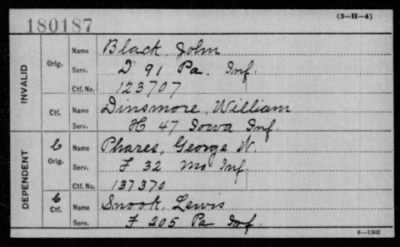 180187
(3-H-4)
INVALID
Orig.
Name Black, John
Serv. D 91 Pa. Inf.
Ctf. No. 123707
Ctf.
Name Dinsmore, William
Serv. H 47 Iowa Inf.
DEPENDENT
C
Orig.
Name Phares, George W.
Serv. F 32 Mo Inf
Ctf. No. 137370
C
Ctf.
Name Snook, Lewis
Serv. F 205 Pa Inf.